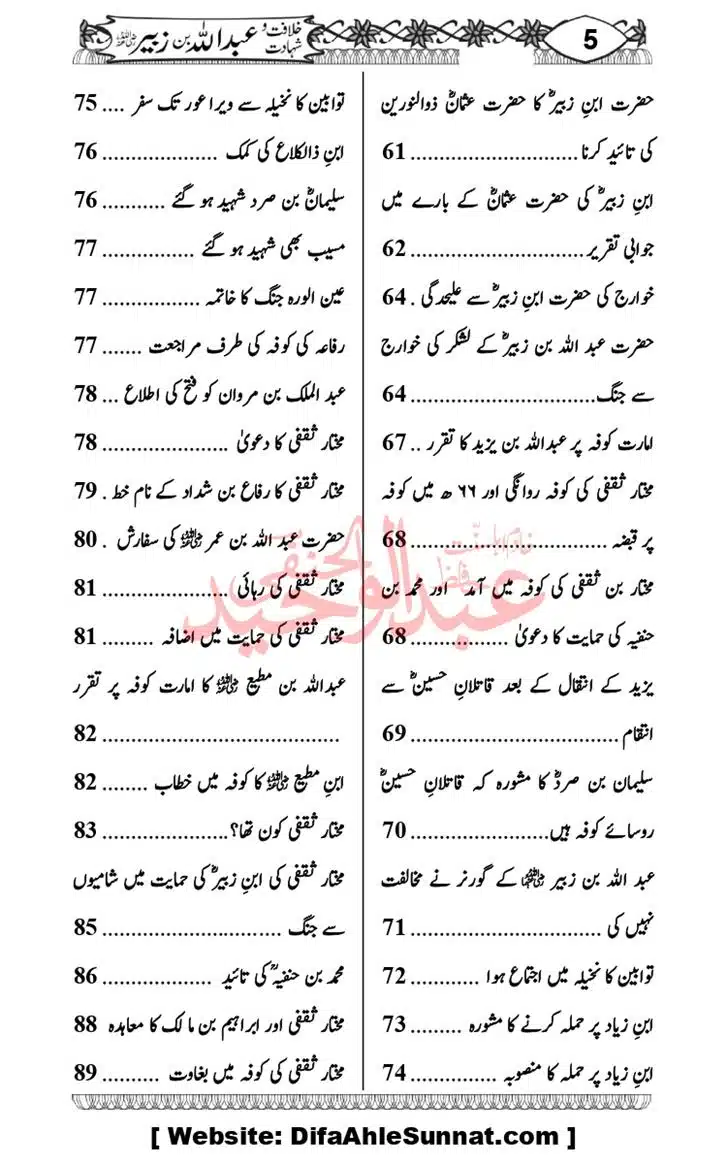 خلافت و شہادت عبداللہ بن زبیر رضی اللہ عنہ
5
حضرت ابنِ زبیرؓ کا حضرت عثمانؓ ذوالنورین
کی تائید کرنا ............................ 61
ابنِ زبیرؓ کی حضرت عثمانؓ کے بارے میں
جوابی تقریر ............................ 62
خوارج کی حضرت ابنِ زبیرؓ سے علیحدگی . 64
حضرت عبد اللہ بن زبیرؓ کے لشکر کی خوارج
سے جنگ .............................. 64
امارت کوفہ پر عبداللہ بن یزید کا تقرر .. 67
مختار ثقفی کی کوفہ روانگی اور ۶۶ ھ میں کوفہ
پر قبضہ ................................ 68
مختار بن ثقفی کی کوفہ میں آمد اور محمد بن
حنفیہ کی حمایت کا دعویٰ ................ 68
یزید کے انتقال کے بعد قاتلانِ حسینؓ سے
انتقام .................................. 69
سلیمان بن صردؓ کا مشورہ کہ قاتلانِ حسینؓ
روسائے کوفہ ہیں ....................... 70
عبد اللہ بن زبیر رضی اللہ عنہما کے گورنر نے مخالفت
نہیں کی ............................... 71
توابین کا نخیلہ میں اجتماع ہوا ............ 72
ابنِ زیاد پر حملہ کرنے کا مشورہ ......... 73
ابنِ زیاد پر حملہ کا منصوبہ .............. 74
توابین کا نخیلہ سے ویراعور تک سفر .... 75
ابنِ ذالکلاع کی کمک ................... 76
سلیمانؓ بن صرد شہید ہو گئے ........... 76
مسیب بھی شہید ہو گئے ............... 77
عین الورہ جنگ کا خاتمہ ................ 77
رفاعہ کی کوفہ کی طرف مراجعت ....... 77
عبد الملک بن مروان کو فتح کی اطلاع ... 78
مختار ثقفی کا دعویٰ ..................... 78
مختار ثقفی کا رفاع بن شداد کے نام خط . 79
حضرت عبد اللہ بن عمر رضی اللہ عنہ کی سفارش . 80
مختار ثقفی کی رہائی ..................... 81
مختار ثقفی کی حمایت میں اضافہ ......... 81
عبداللہ بن مطیع رضی اللہ عنہ کا امارت کوفہ پر تقرر
....................................... 82
ابنِ مطیع رضی اللہ عنہ کا کوفہ میں خطاب ........ 82
مختار ثقفی کون تھا؟ ..................... 83
مختار ثقفی کی ابنِ زبیرؓ کی حمایت میں شامیوں
سے جنگ .............................. 85
محمد بن حنفیہؒ کی تائید .................. 86
مختار ثقفی اور ابراہیم بن مالک کا معاہدہ 88
مختار ثقفی کی کوفہ میں بغاوت .......... 89
خادم اہلسنت
حافظ عبدالوحید الحنفی
[ Website: DifaAhleSunnat.com ]